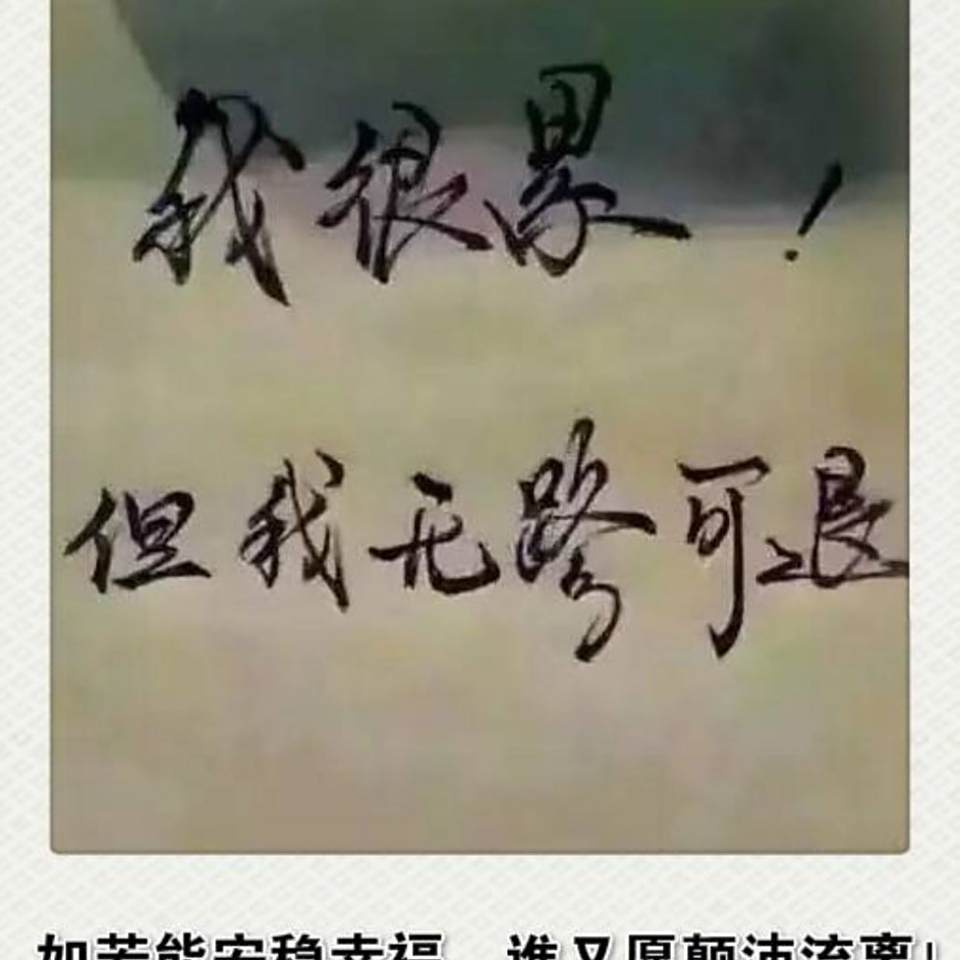 我很累！
但我无路可退
如若能安稳幸福，谁又愿颠沛流离！